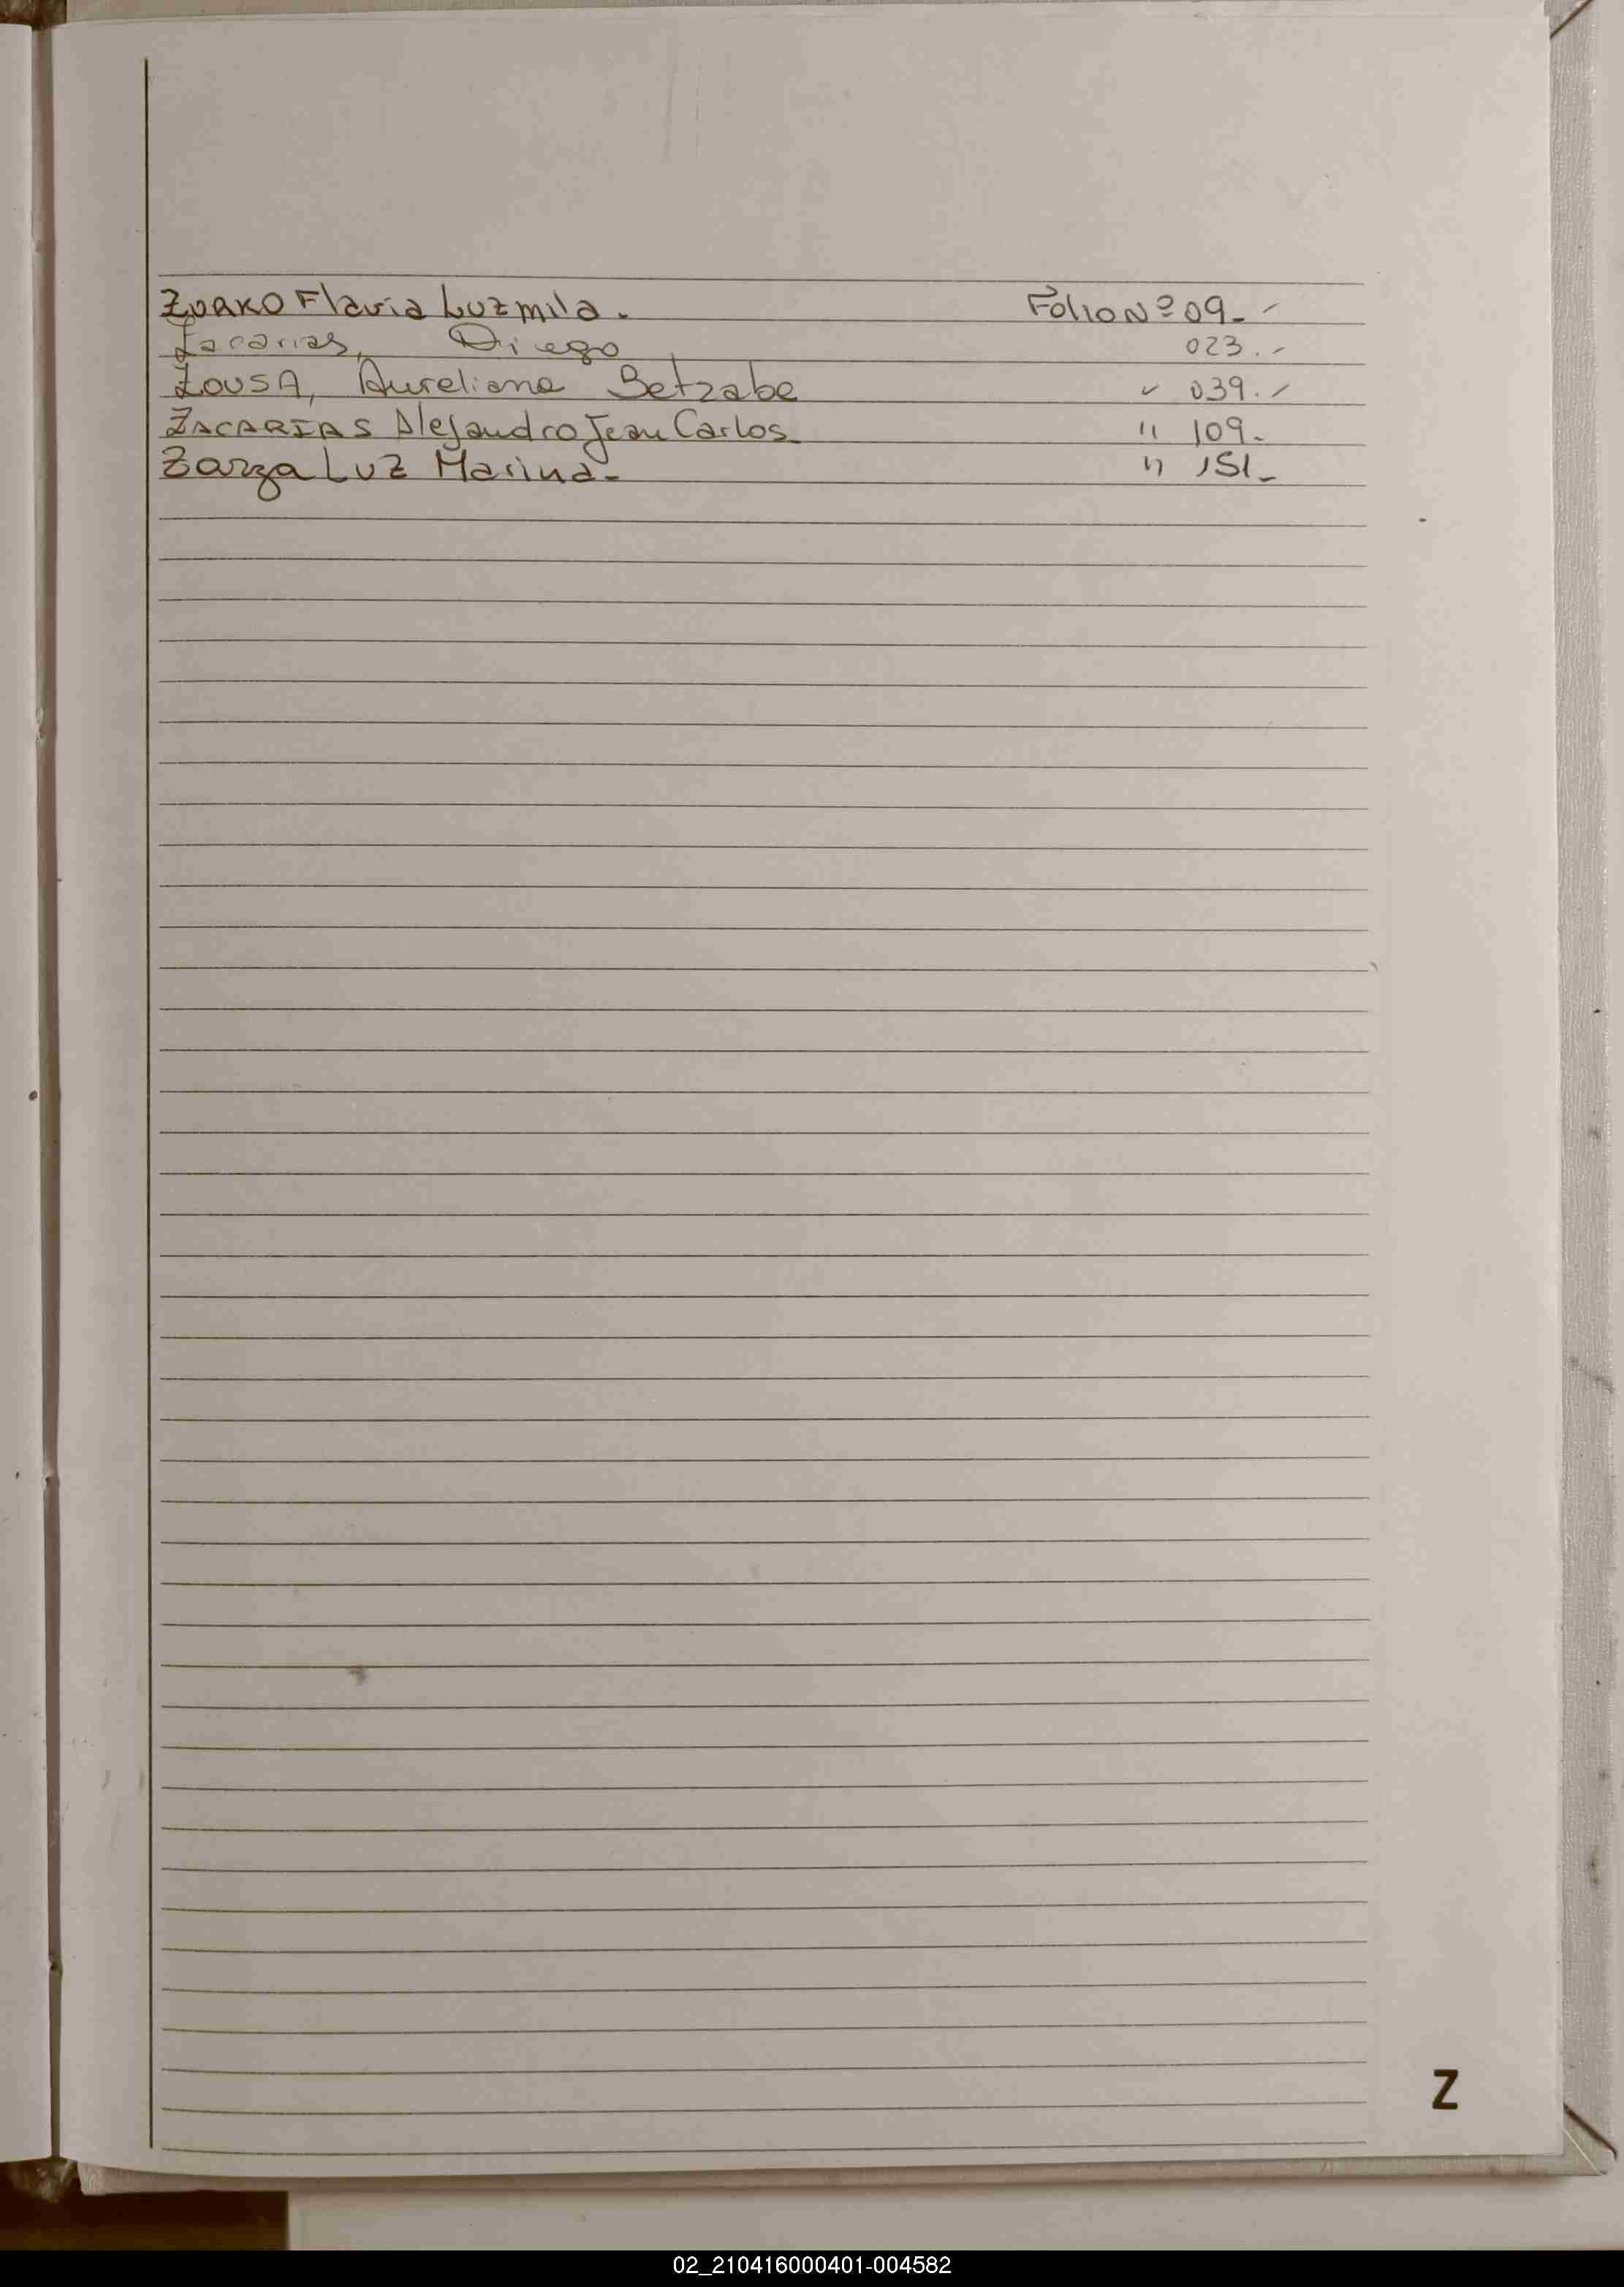 Zurko Flavia Luzmila. Folio Nº 09.-
Zacarias, Diego 023.-
Zousa, Aureliana Betzabe 039.-
ZACARIAS Alejandro Jean Carlos " 109-
Zarza Luz Marina- " 151-
Z
02_210416000401-004582